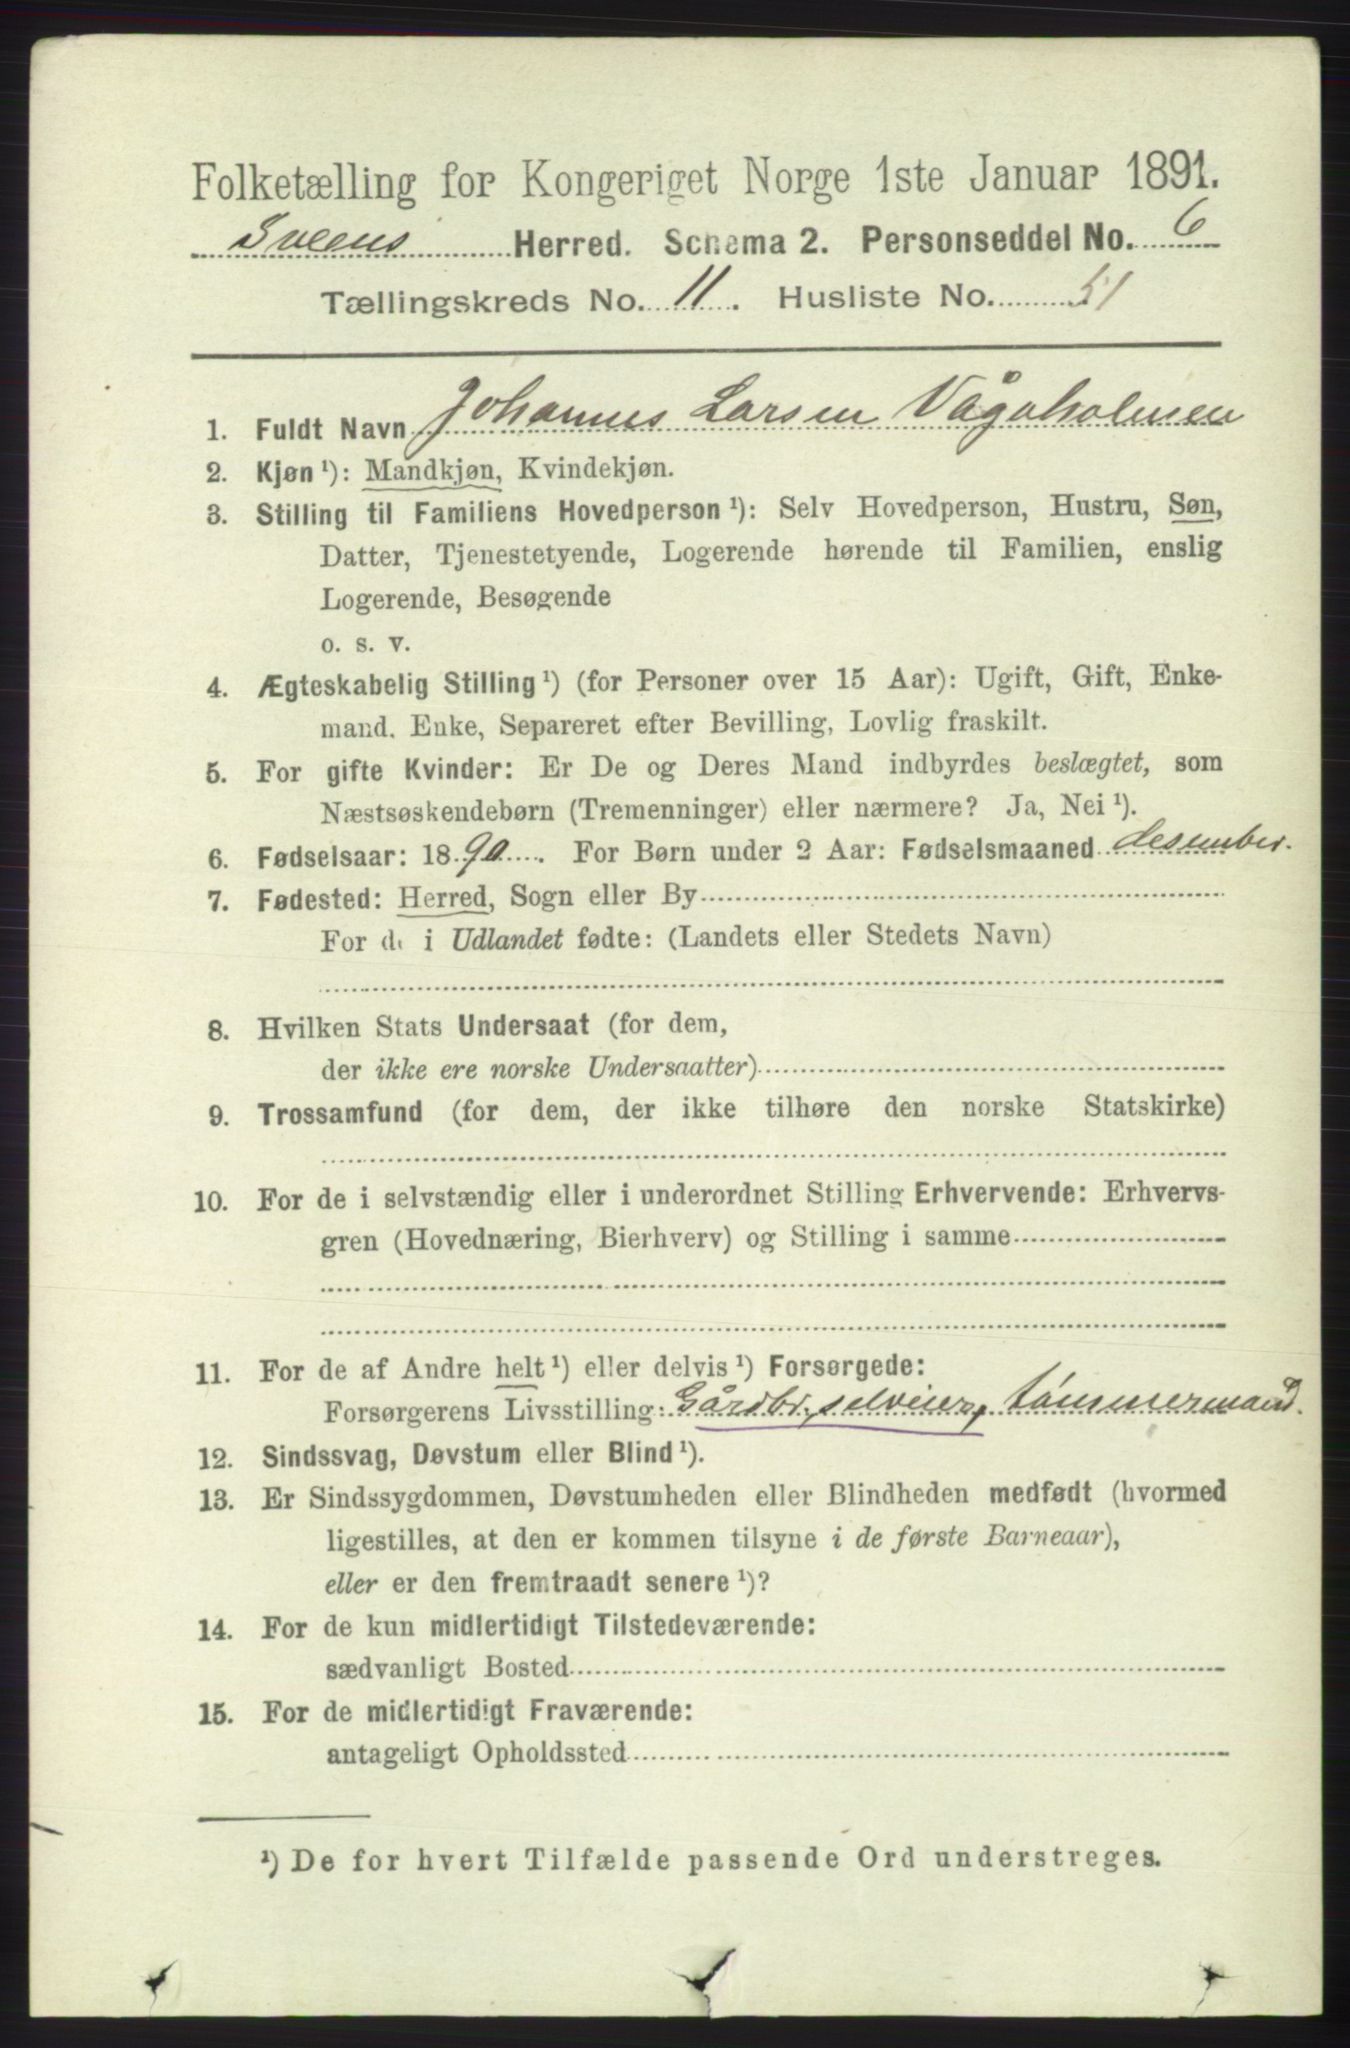 Folketælling for Kongeriget Norge 1ste Januar 1891.
Sveens Herred. Schema 2. Personseddel No. 6
Tællingskreds No. 11. Husliste No. 51
1. Fuldt Navn Johannes Larsen Vågaholmen
2. Kjøn ¹): Mandkjøn, Kvindekjøn.
3. Stilling til Familiens Hovedperson ¹): Selv Hovedperson, Hustru, Søn,
Datter, Tjenestetyende, Logerende hørende til Familien, enslig
Logerende, Besøgende
o. s. v.
4. Ægteskabelig Stilling ¹) (for Personer over 15 Aar): Ugift, Gift, Enke-
mand, Enke, Separeret efter Bevilling, Lovlig fraskilt.
5. For gifte Kvinder: Er De og Deres Mand indbyrdes beslægtet, som
Næstsøskendebørn (Tremenninger) eller nærmere? Ja, Nei ¹).
6. Fødselsaar: 1890. For Børn under 2 Aar: Fødselsmaaned desember.
7. Fødested: Herred, Sogn eller By
For de i Udlandet fødte: (Landets eller Stedets Navn)
8. Hvilken Stats Undersaat (for dem,
der ikke ere norske Undersaatter)
9. Trossamfund (for dem, der ikke tilhøre den norske Statskirke)
10. For de i selvstændig eller i underordnet Stilling Erhvervende: Erhvervs-
gren (Hovednæring, Bierhverv) og Stilling i samme
11. For de af Andre helt ¹) eller delvis ¹) Forsørgede:
Forsørgerens Livsstilling: Gårdbr, selveier, tømmermand.
12. Sindssvag, Døvstum eller Blind ¹).
13. Er Sindssygdommen, Døvstumheden eller Blindheden medfødt (hvormed
ligestilles, at den er kommen tilsyne i de første Barneaar),
eller er den fremtraadt senere ¹)?
14. For de kun midlertidigt Tilstedeværende:
sædvanligt Bosted
15. For de midlertidigt Fraværende:
antageligt Opholdssted
¹) De for hvert Tilfælde passende Ord understreges.